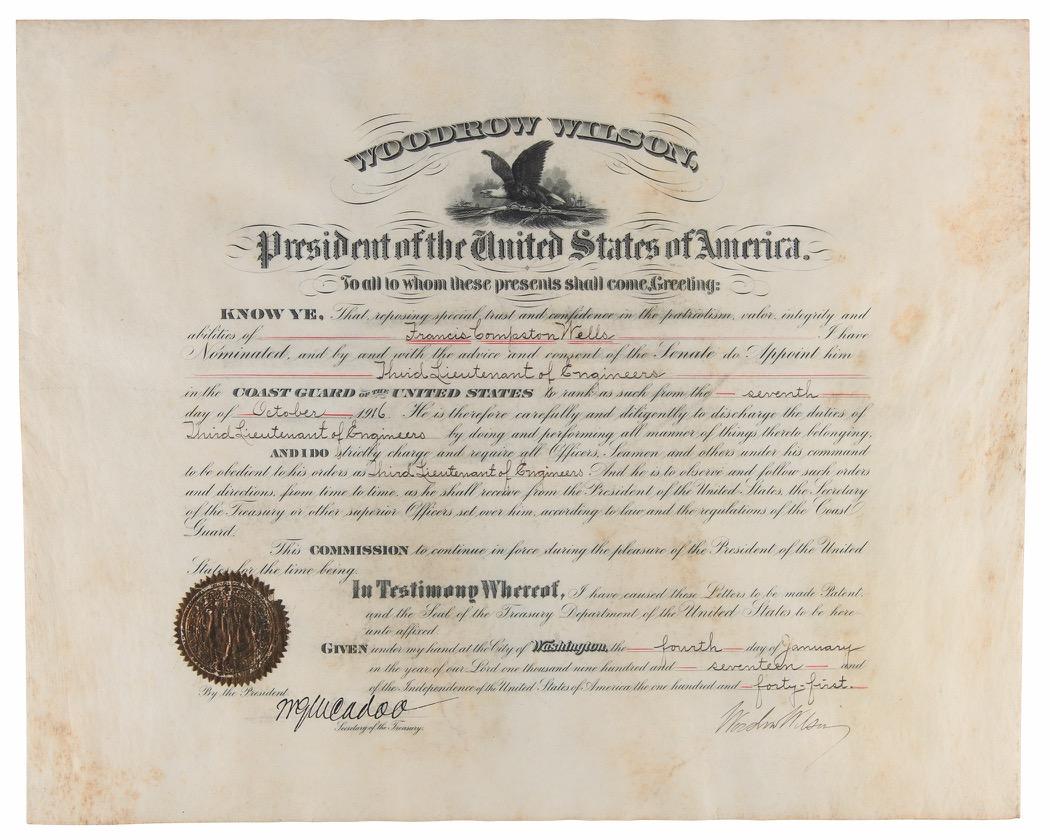 WOODROW WILSON,
President of the United States of America.
To all to whom these presents shall come, Greeting:
KNOW YE, That, reposing special trust and confidence in the patriotism, valor, integrity and
abilities of Francis Compston Wells I have
Nominated, and by and with the advice and consent of the Senate do Appoint him
Third Lieutenant of Engineers
in the COAST GUARD OF THE UNITED STATES to rank as such from the seventh
day of October, 1916. He is therefore carefully and diligently to discharge the duties of
Third Lieutenant of Engineers by doing and performing all manner of things thereto belonging,
AND I DO strictly charge and require all Officers, Seamen and others under his command
to be obedient to his orders as Third Lieutenant of Engineers. And he is to observe and follow such orders
and directions, from time to time, as he shall receive from the President of the United States, the Secretary
of the Treasury or other superior Officers set over him, according to law and the regulations of the Coast
Guard.
This COMMISSION to continue in force during the pleasure of the President of the United
States for the time being.
In Testimony Whereof, I have caused these Letters to be made Patent,
and the Seal of the Treasury Department of the United States to be here
unto affixed
GIVEN under my hand at the City of Washington, the fourth day of January
in the year of our Lord one thousand nine hundred and seventeen and
of the Independence of the United States of America the one hundred and forty-first.
By the President
W G McAdoo
Secretary of the Treasury.
Woodrow Wilson